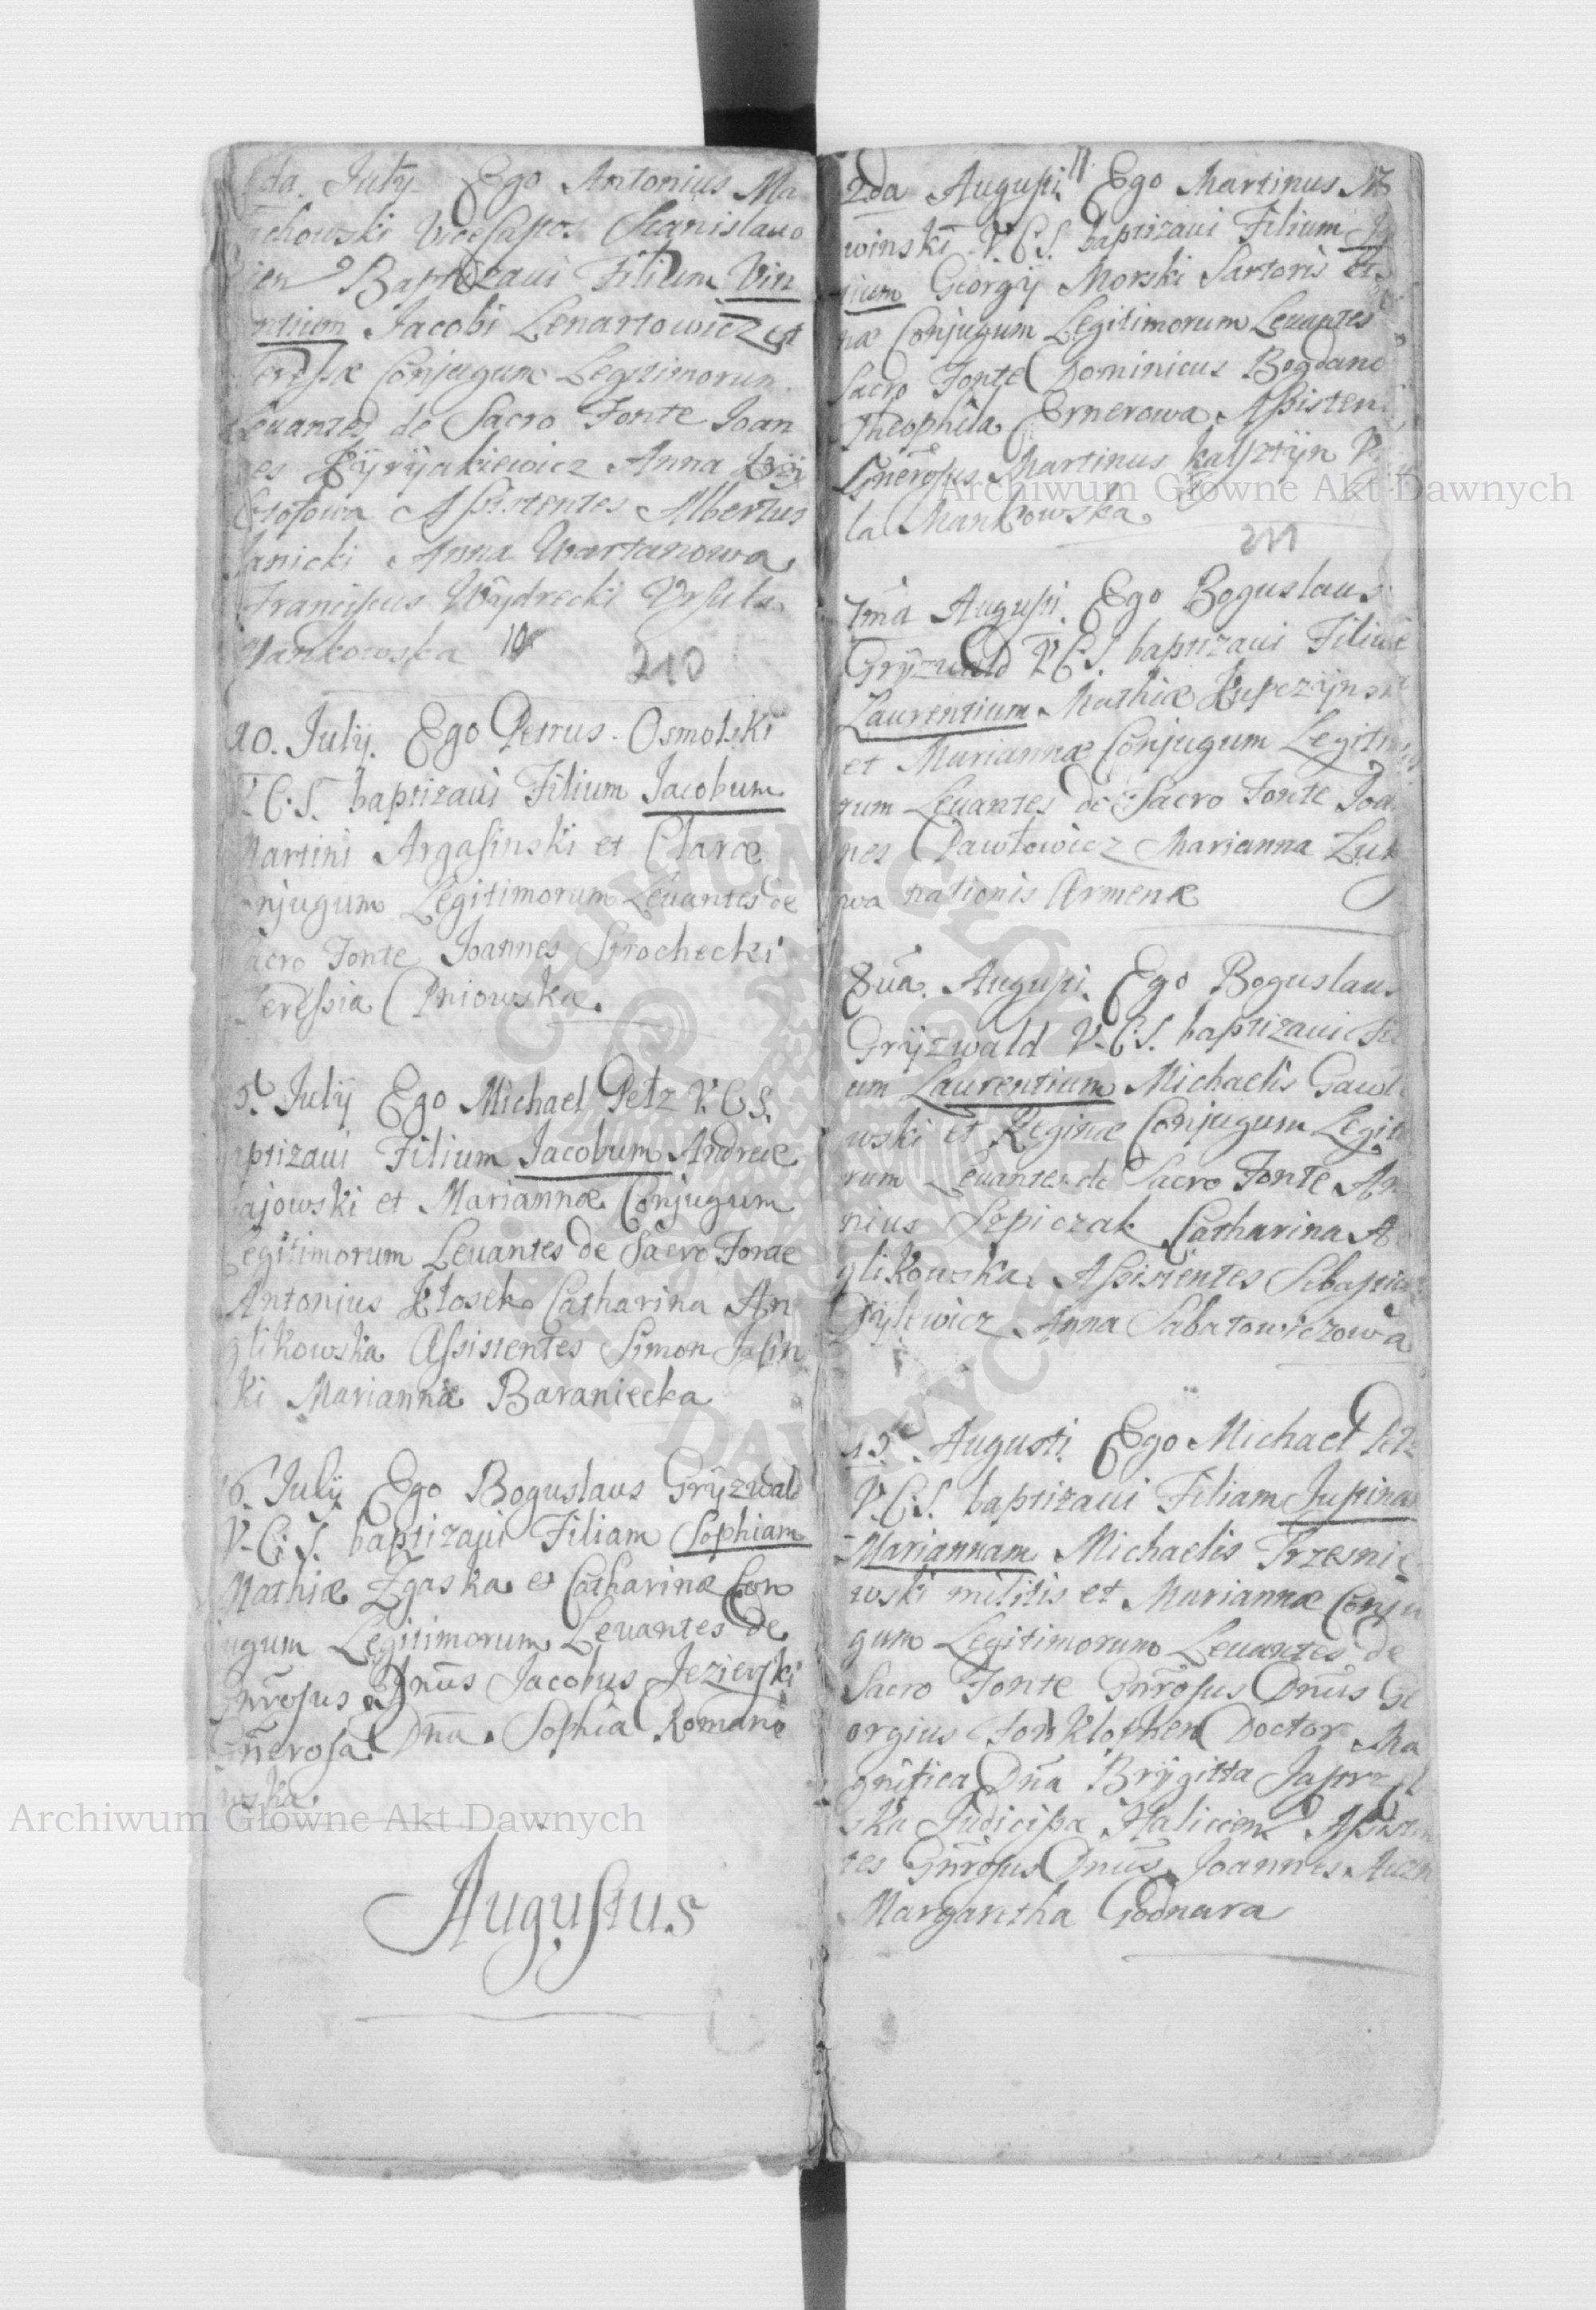 da. July Ego Antonius Ma
chowski ViceCapos Stanislauo
ien Baptizaui Filium Vin
ntium Jacobi Lenartowicz et
Teressæ Conjugum Legitimorum.
Leuantes de Sacro Fonte Joan
nes Kÿrÿakiewicz Anna Krzÿ
sztofowa Assistentes Albertus
Janicki Anna Wartanowa
Franciscus Wÿdrecki Vrsula
Mankowska 10
210
10. Julÿ. Ego Petrus Osmolski
V.C.S. baptizaui Filium Jacobum
Martini Argasinski et Claræ
onjugum Legitimorum Leuantes de
Sacro Fonte Joannes Strochecki
Teressia Pniowska.
5. Julÿ Ego Michael Petz V.C.S.
aptizaui Filium Jacobum Andreæ
ajowski et Mariannæ Conjugum
Legitimorum Leuantes de Sacro Fonte
Antonius Kłosek Catharina An
glikowska Assistentes Simon Jasin
ki Marianna Baraniecka
6. Julÿ Ego Boguslaus Grÿzwald
V.C.S. baptizaui Filiam Sophiam
Mathiæ Zgaska et Catharinæ Con
iugum Legitimorum Leuantes de
Gnrosus Dnus Jacobus Jezierski
Gnerosa Dna Sophia Romano
wska.
Augustus
2da Augusti 11. Ego Martinus
winski V.C.S. baptizaui Filium
ium Georgÿ Morski Sartoris et
næ Conjugum Legitimorum Leuantes
Sacro Fonte Dominicus Bogdano
Theophila Ernerowa Assisten
Gnerosus Martinus Kalsztÿn
la Mankowska
211
7ma Augusti. Ego Boguslaus
Grÿzwald V.C.S. baptizaui Filium
Laurentium Mathiæ Kupczÿnski
et Mariannæ Conjugum Legitimo
rum Leuantes de Sacro Fonte Joa
nes Pawłowicz Marianna
wa nationis Armenæ
8ua. Augusti. Ego Boguslaus
Grÿzwald V.C.S. baptizaui Fili
um Laurentium Michaelis Gawl
wski et Reginæ Conjugum Legit
rum Leuantes de Sacro Fonte An
nius Szpiczak Catharina A
glikowska Assistentes Sebastian
Anna Sabatowiczowa
15. Augusti Ego Michael Petz
V.C.S. baptizaui Filiam Justinam
Mariannam Michaelis Trzesnie
wski militis et Mariannæ Conju
gum Legitimorum Leuantes de
Sacro Fonte Gnrosus Dnus Ge
orgius Fon Klophen Doctor Ma
gnifica Dna Brÿgitta Jastrz
ska Judicissa Haliciens Assisten
tes Gnrosus Dnus Joannes
Margaretha Godnara
Archiwum Główne Akt Dawnych
Archiwum Główne Akt Dawnych
ARCHIWUM GŁÓWNE AKT DAWNYCH